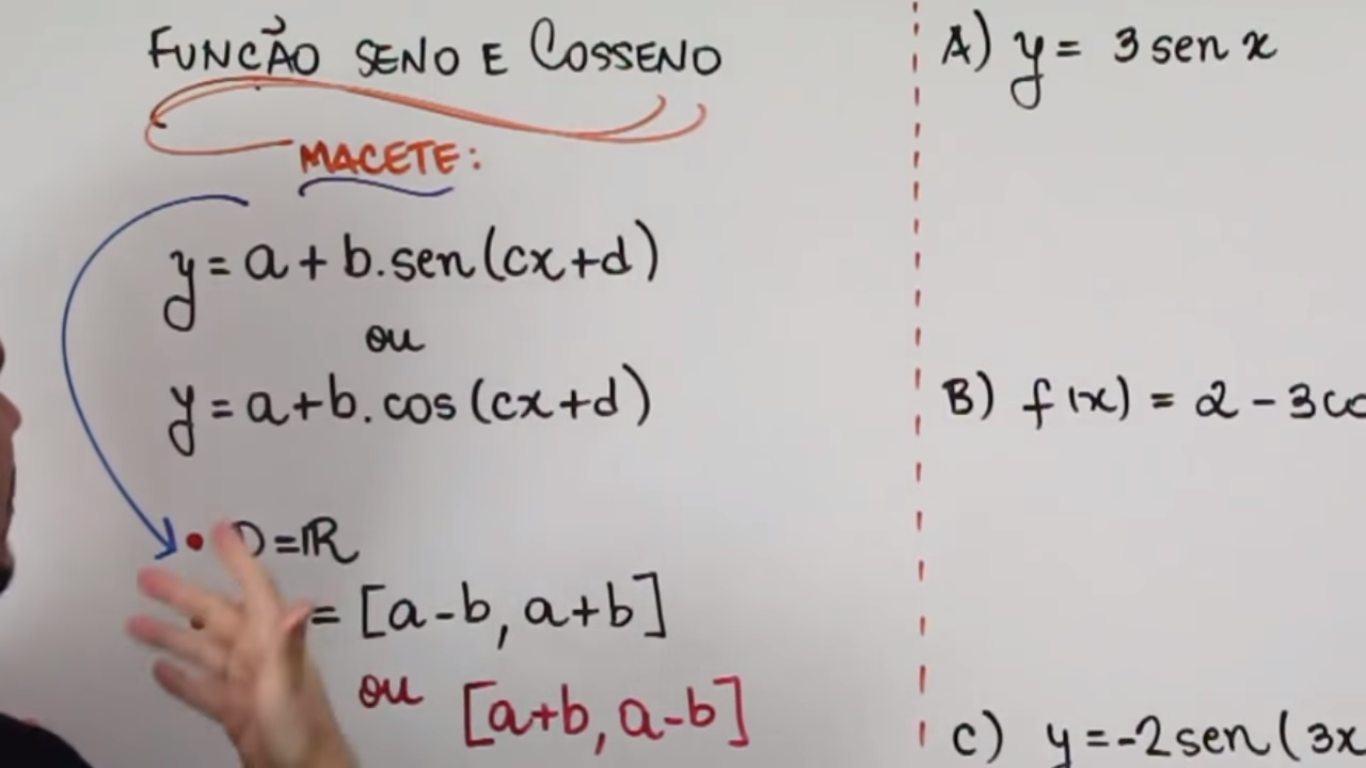 FUNÇÃO SENO E COSSENO
MACETE:
y = a + b.sen(cx+d)
ou
y = a+b.cos(cx+d)
• D = ℝ
= [a-b, a+b]
ou [a+b, a-b]
A) y = 3 sen x
B) f(x) = 2 - 3co
C) y = -2sen(3x